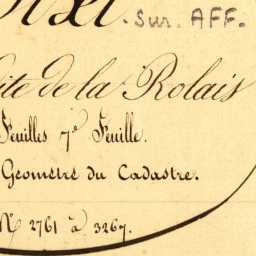 Sur. AFF.
dite de la Rolais
Feuilles 7e Feuille.
Géomètre du Cadastre.
Nº 2761 à 3267.